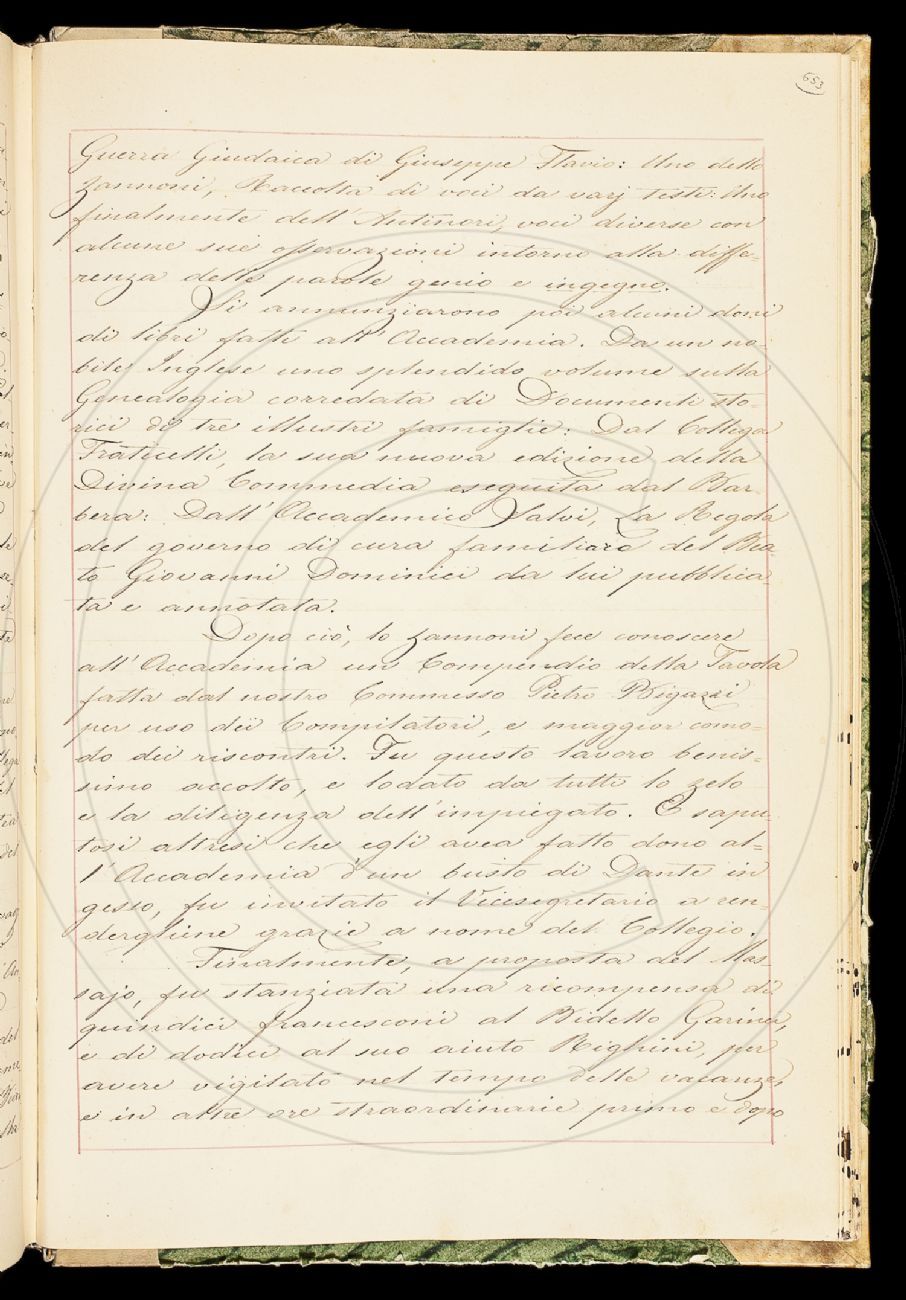 653
Guerra Giudaica di Giuseppe Flavio: Uno dello
Zannoni, Raccolta di voci da varj testi: Uno
finalmente dell'Antinori, voci diverse con
alcune sue osservazioni intorno alla diffe=
renza delle parole genio e ingegno.
Si annunziarono poi alcuni doni
di libri fatti all'Accademia. Da un no=
bile Inglese uno splendido volume sulla
Genealogia corredata di Documenti sto=
rici di tre illustri famiglie: Dal Collega
Fraticelli, la sua nuova edizione della
Divina Commedia eseguita dal Bar
bera: Dall'Accademico Salvi, La Regola
del governo di cura familiare del Bea
to Giovanni Dominici da lui pubblica=
ta e annotata.
Dopo ciò, lo Zannoni fece conoscere
all'Accademia un Compendio della Tavola
fatta dal nostro Commesso Pietro Bigazzi
per uso dei Compilatori, e maggior como=
do dei riscontri. Fu questo lavoro benis=
simo accolto, e lodato da tutti lo zelo
e la diligenza dell'impiegato. E sapu=
tosi altresì che egli avea fatto dono al=
l'Accademia d'un busto di Dante in
gesso, fu invitato il Vicesegretario a ren=
dergliene grazie a nome del Collegio.
Finalmente, a proposta del Mas=
sajo, fu stanziata una ricompensa di
quindici francesconi al Bidello Garinei,
e di dodici al suo aiuto Righini, per
avere vigilato nel tempo delle vacanze,
e in altre ore straordinarie primo e dopo